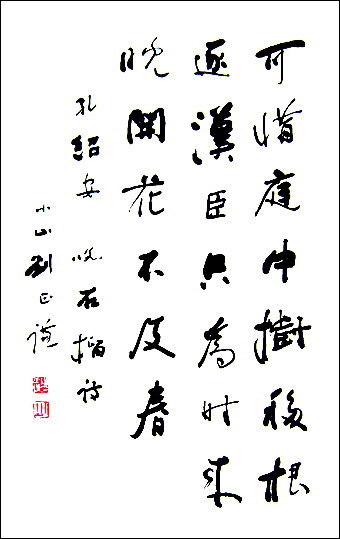 可惜庭中樹移根
逐漢臣只為时来
晚開花不及春
孔紹安 咏石榴诗
小山刘正